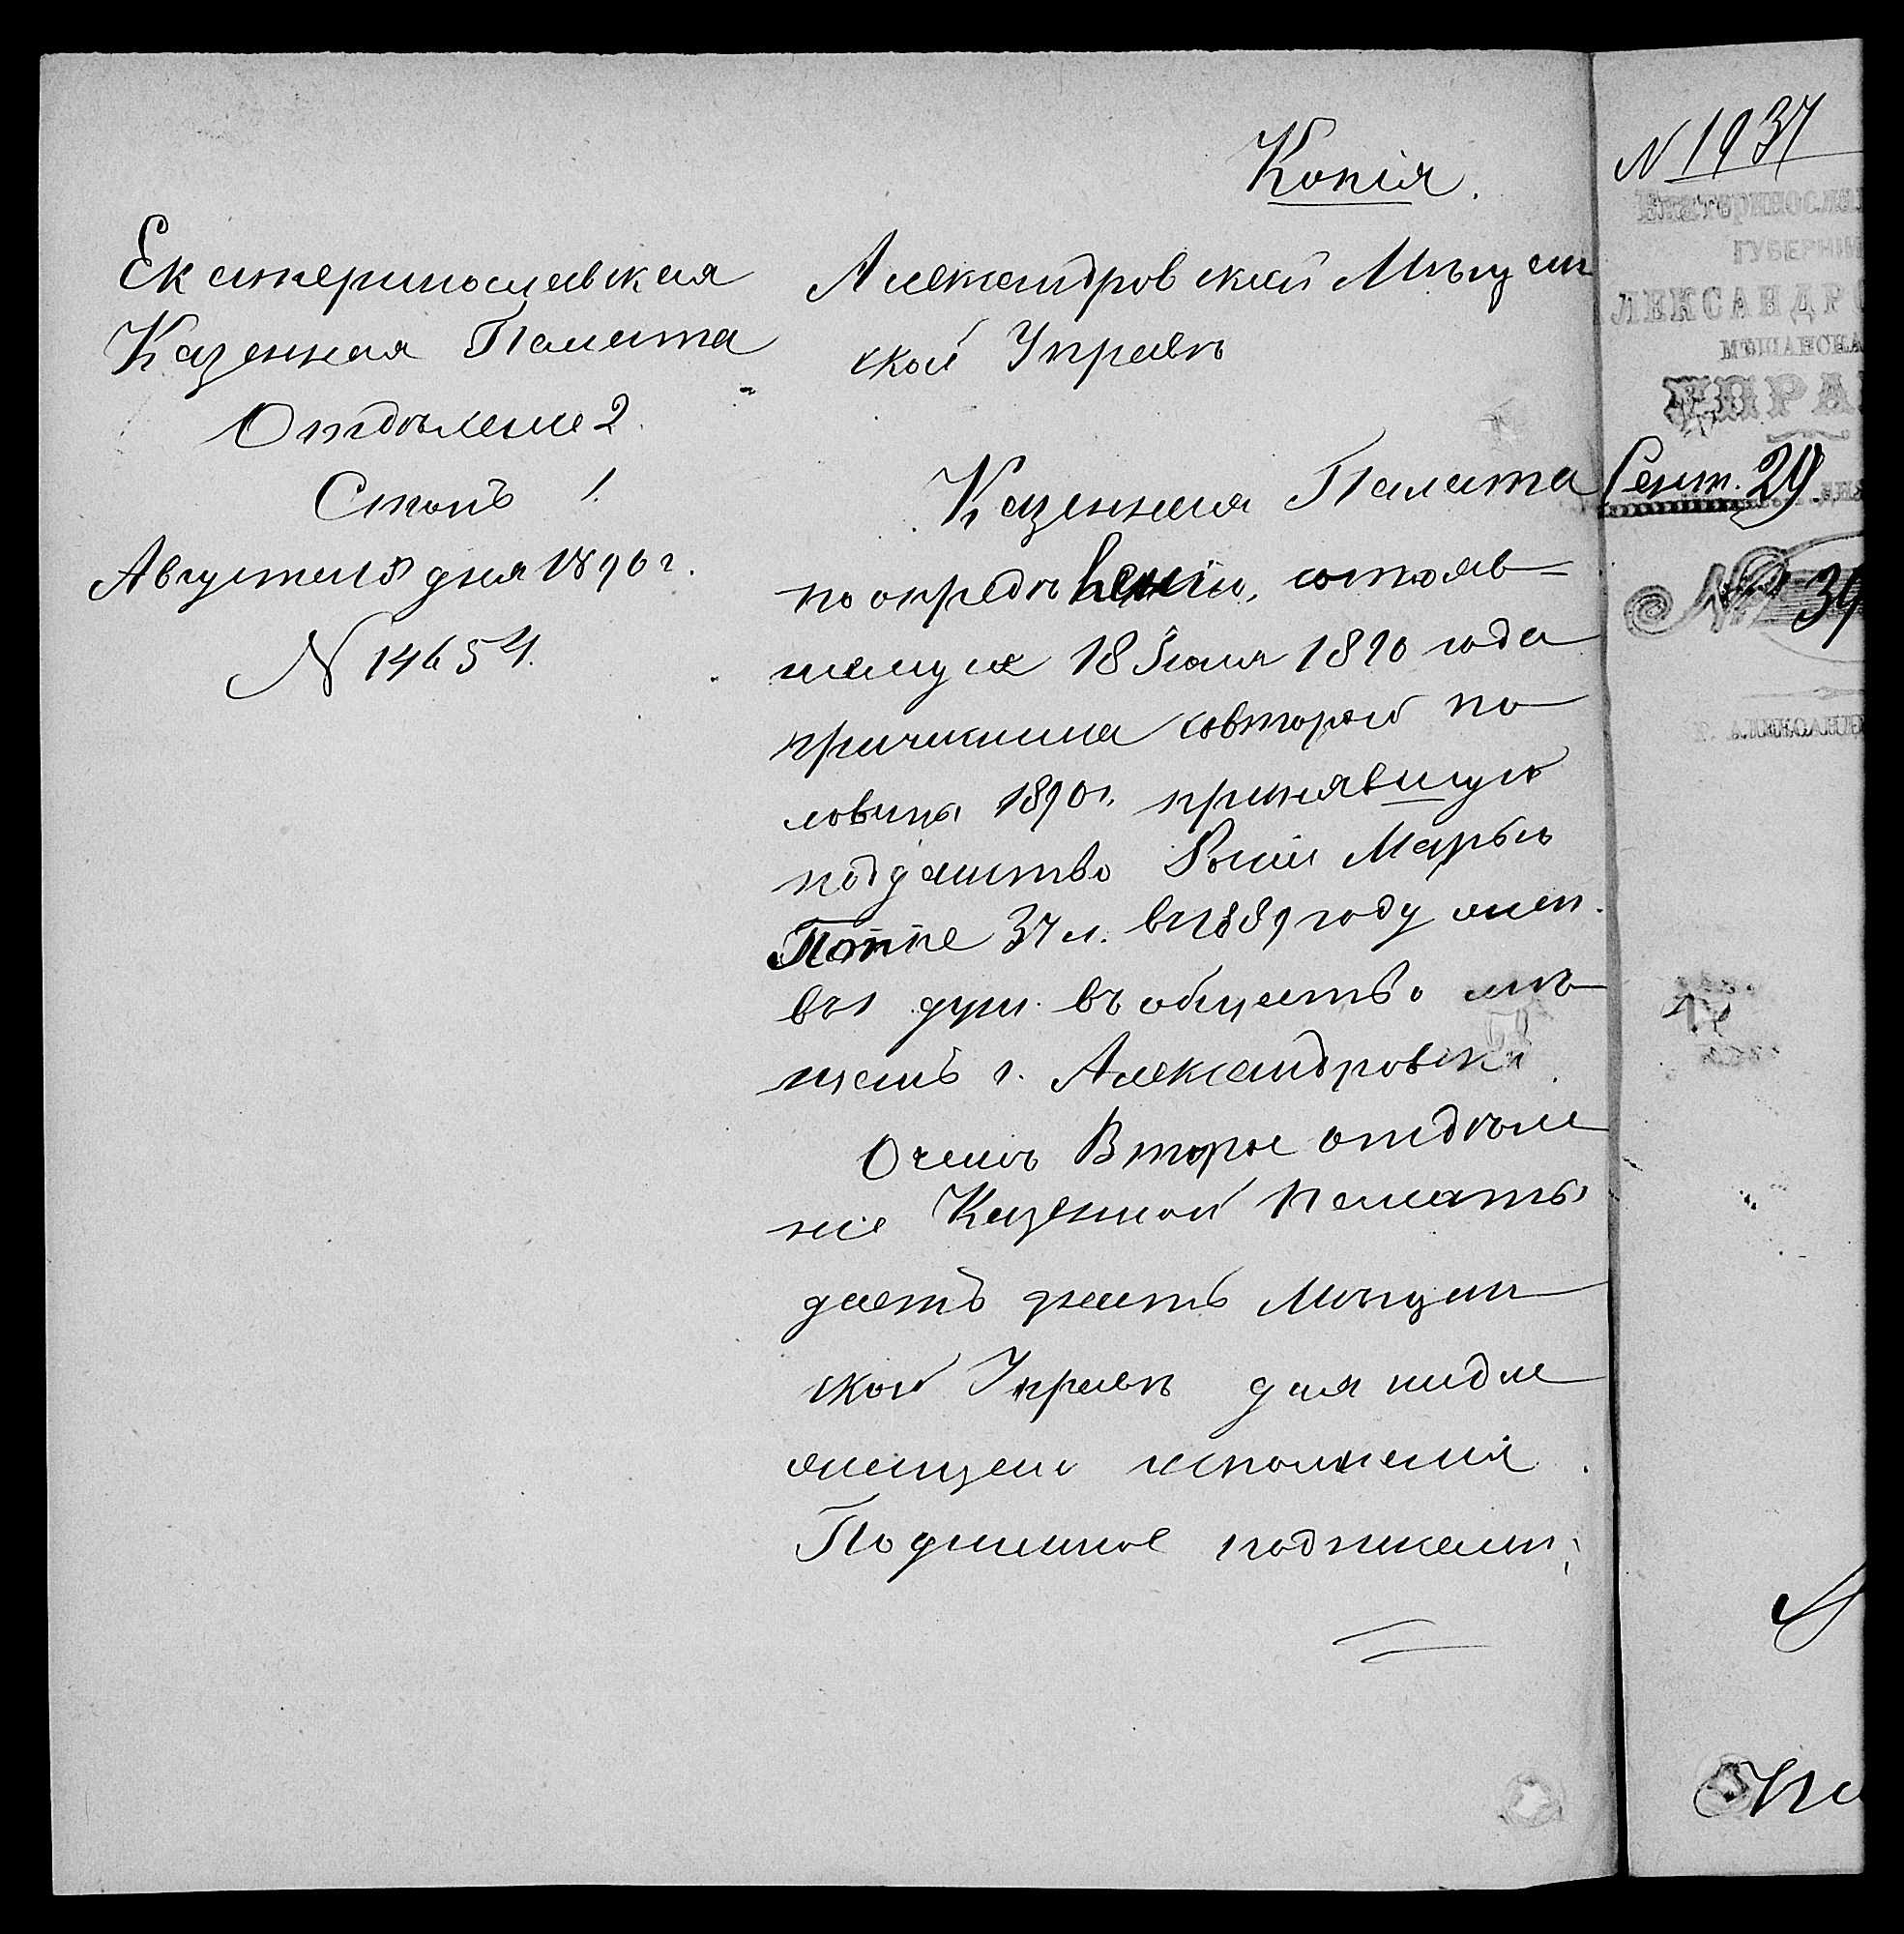 Копія.
Екатеринославская
Казенная Палата
Отдѣленіе 2.
Столъ 1.
Августа 13 дня 1890 г.
N 14654.
Александровской Мѣщан
ской Управѣ
Казенная Палата
по опредѣленію, состояв=
шемуся 18 Іюля 1890 года
причислила со второй по
ловины 1890 г. принявшую
подданство Росіи Марью
Поппе 37 л. въ 1889 году
въ 1 душ. въ общество мѣ
щанъ г. Александровска.
О чемъ Второе отдѣле
ніе Казенной Палаты
даетъ знать Мѣщан
ской Управѣ для надле
жащаго исполненія.
Подлинное подписали;
N 1937
Екатеринослав
ГУБЕРНІИ
ЛЕКСАНДРО
МѢЩАНСКА
УПРАВ
Сент. 29.
№ 39